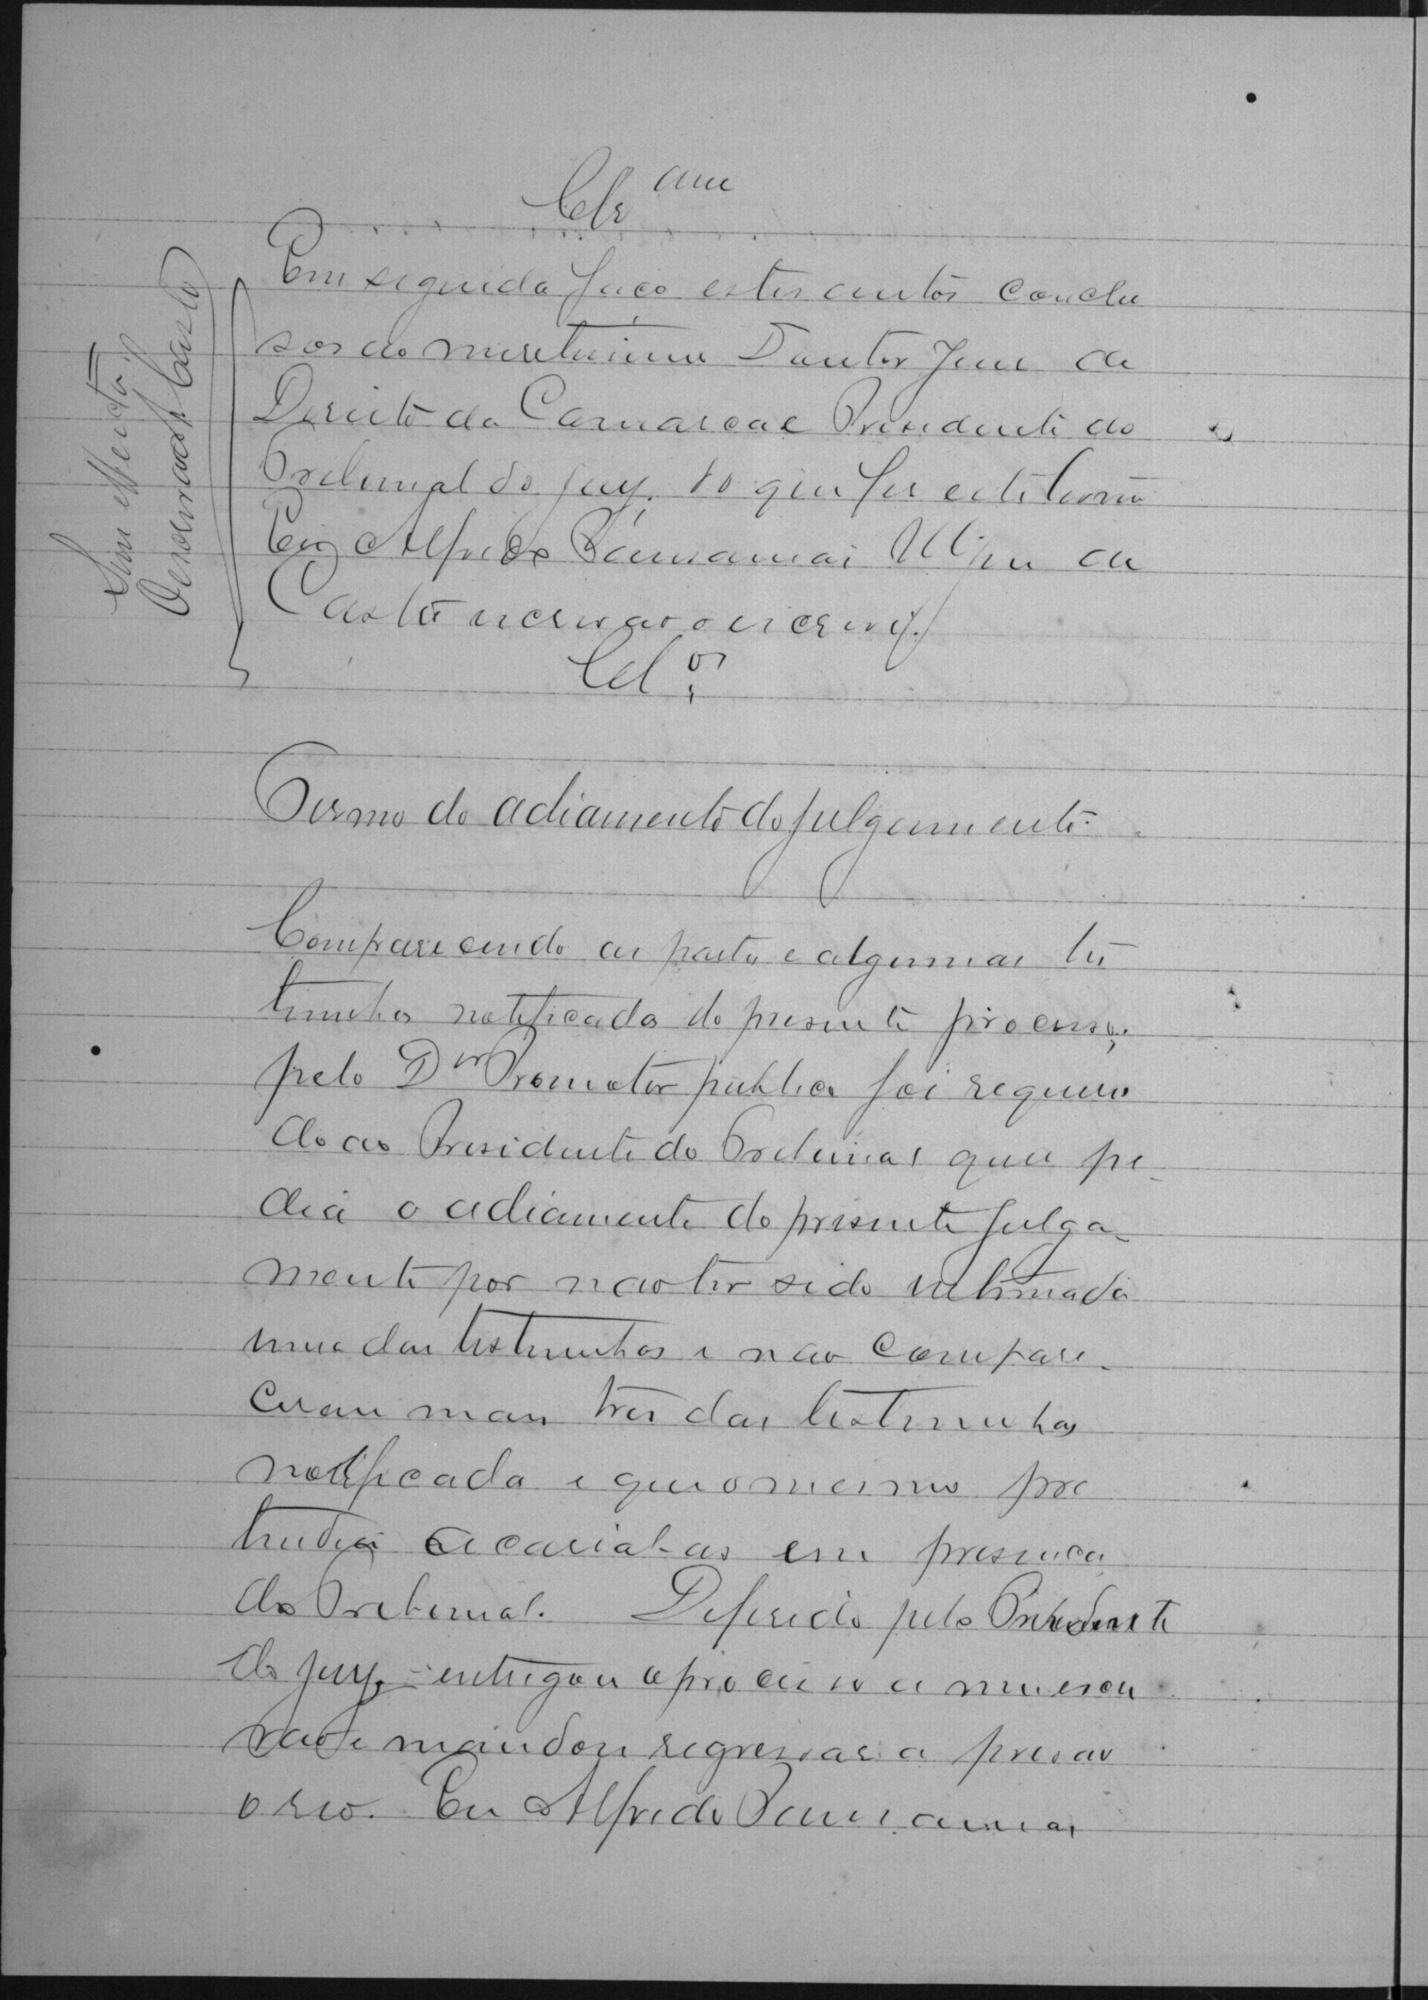 Clsam
Em seguida faço estes autos conclu
sos ao meretissimo Doutor Juiz de
Direito da Comarca e Presidente do
Tribunal do Jury. do que fiz este termo
Eu Alfredo de
Castro escrivão o escrevy.
Clos
Sem effeito
O escrivão Castro
Termo de adiamento do julgamento.
Comparecendo as partes e algumas tes
timunhas notificadas do presente processo;
pelo Dor Promotor publico foi requeri
do ao Presidente do Tribunal que pe
dia o adiamento do presente julga-
mento por não ter sido intimada
uma das testimunhas e não compare-
ceram mais tres das testimunhas
notificadas e que o mesmo pre
tendia acarial-as em presença
do Tribunal. Deferido pelo Presidente
do jury, entregou o processo a mim escri
vão e mandou regressar a prisão
o reo. Eu Alfredo